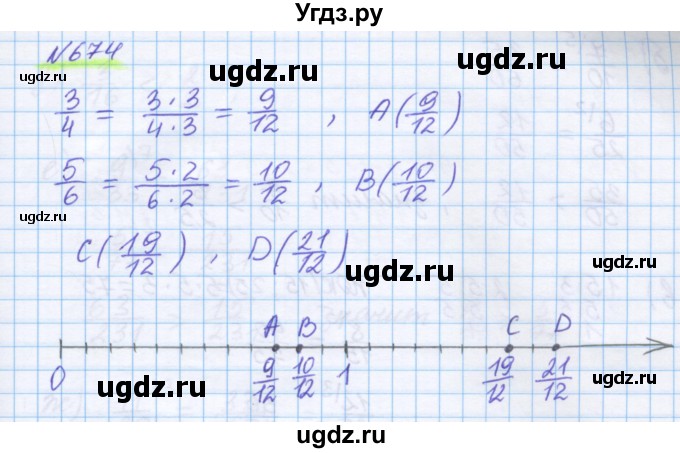 Угдз.ру
№674
ugdz.ru ugdz.ru ugdz.ru
3/4 = 3·3/4·3 = 9/12 , A(9/12)
ugdz.ru
5/6 = 5·2/6·2 = 10/12 , B(10/12)
ugdz.ru ugdz.ru
C(19/12) , D(21/12)
ugdz.ru
A B C D
0 9/12 10/12 1 19/12 21/12
ugdz.ru ugdz.ru
ugdz.ru